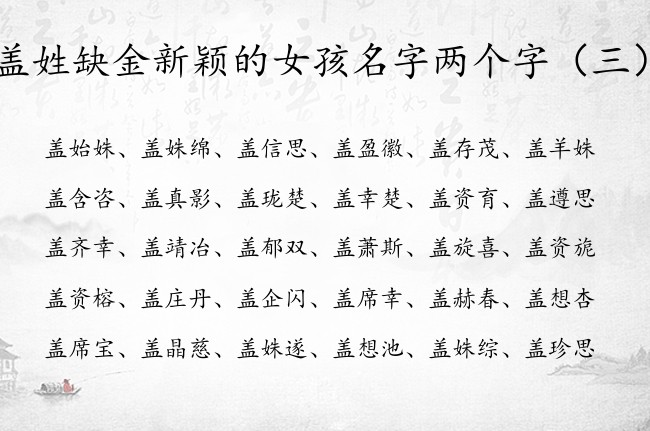 盖姓缺金新颖的女孩名字两个字（三）
盖始姝、盖姝绵、盖信思、盖盈徽、盖存茂、盖羊姝
盖含咨、盖真影、盖珑楚、盖幸楚、盖资育、盖遵思
盖齐幸、盖靖冶、盖郁双、盖萧斯、盖旋喜、盖资旎
盖资榕、盖庄丹、盖企闪、盖席幸、盖赫春、盖想杏
盖席宝、盖晶慈、盖姝遂、盖想池、盖姝综、盖珍思